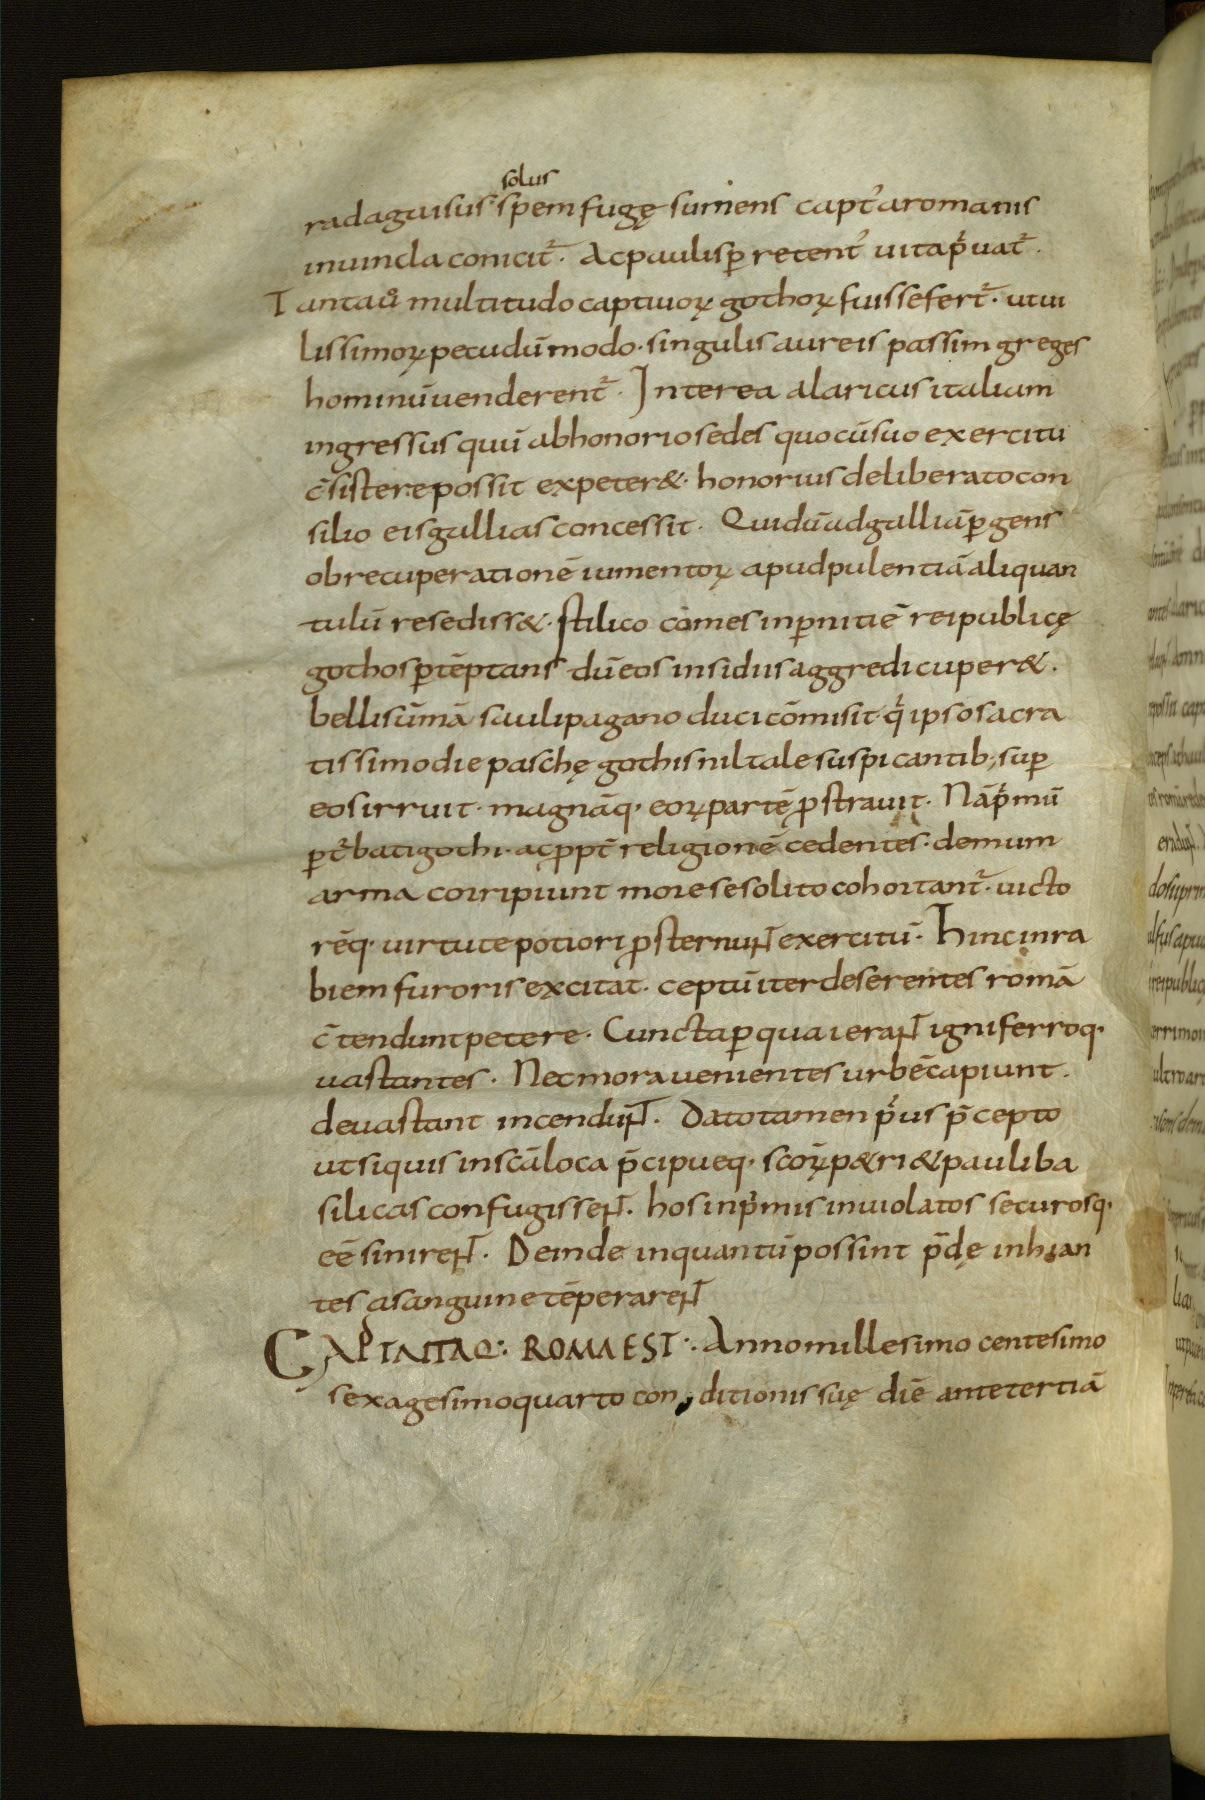 solus
radagaisus spem fugę sumens capt᾽ aromanis
inuincla conicit᷑. Acpaulisꝑ retent᾽ uita pͥuat᷑.
Tantaũ multitudo captiuoꝝ gothoꝝ fuissefert᷑. utui
lissimoꝝ pecudū modo. singulis aureis passim greges
hominū uenderent᷑. Interea alaricus italiam
ingressus quū abhonorio sedes quo cū suo exercitu
c̄sistere possit expeter&. honorius deliberato con
silio eis gallias concessit. Qui dū ad galliā ꝑgens
ob recuperationē iumentoꝝ apud pulentiā aliquan
tulū resediss&. stilico comes inꝑnitiē reipublicę
gothos ꝑtēptans dū eos insidiis aggredi cuper&.
belli sūmā sauli pagano duci cōmisit. qͥ ipso sacra
tissimo die paschę gothis nil tale suspicantib; suꝑ
eos irruit. magnāq. eoꝝ partē ꝓstrauit. Nā pͥmū
ꝑt᷑bati gothi. ac ꝓpt᷑ religionē cedentes. demum
arma corripiunt more se solito cohortant᷑. uicto
rēq. uirtute potiori ꝓsternuɴᴛ exercitū. Hinc inra
biem furoris excitat. ceptū iter deserentes romā
c̄tendunt petere. Cuncta ꝑ qua ieraɴᴛ igni ferroq.
uastantes. Nec mora uenientes urbē capiunt.
deuastant incenduɴᴛ. Dato tamen pͥus p̄cepto
ut siquis in sc̄a loca p̄cipueq. sc̄oꝝ p&ri & pauli ba
silicas confugisseɴᴛ. hos inpͥmis inuiolatos securosq.
eē sinireɴᴛ. Deinde inquantū possint p̄dę inhian
tes a sanguine tēperareɴᴛ
CAPTA ITAQ: ROMA EST:. Anno millesimo centesimo
sexagesimo quarto conditionis suę diē ante tertiā